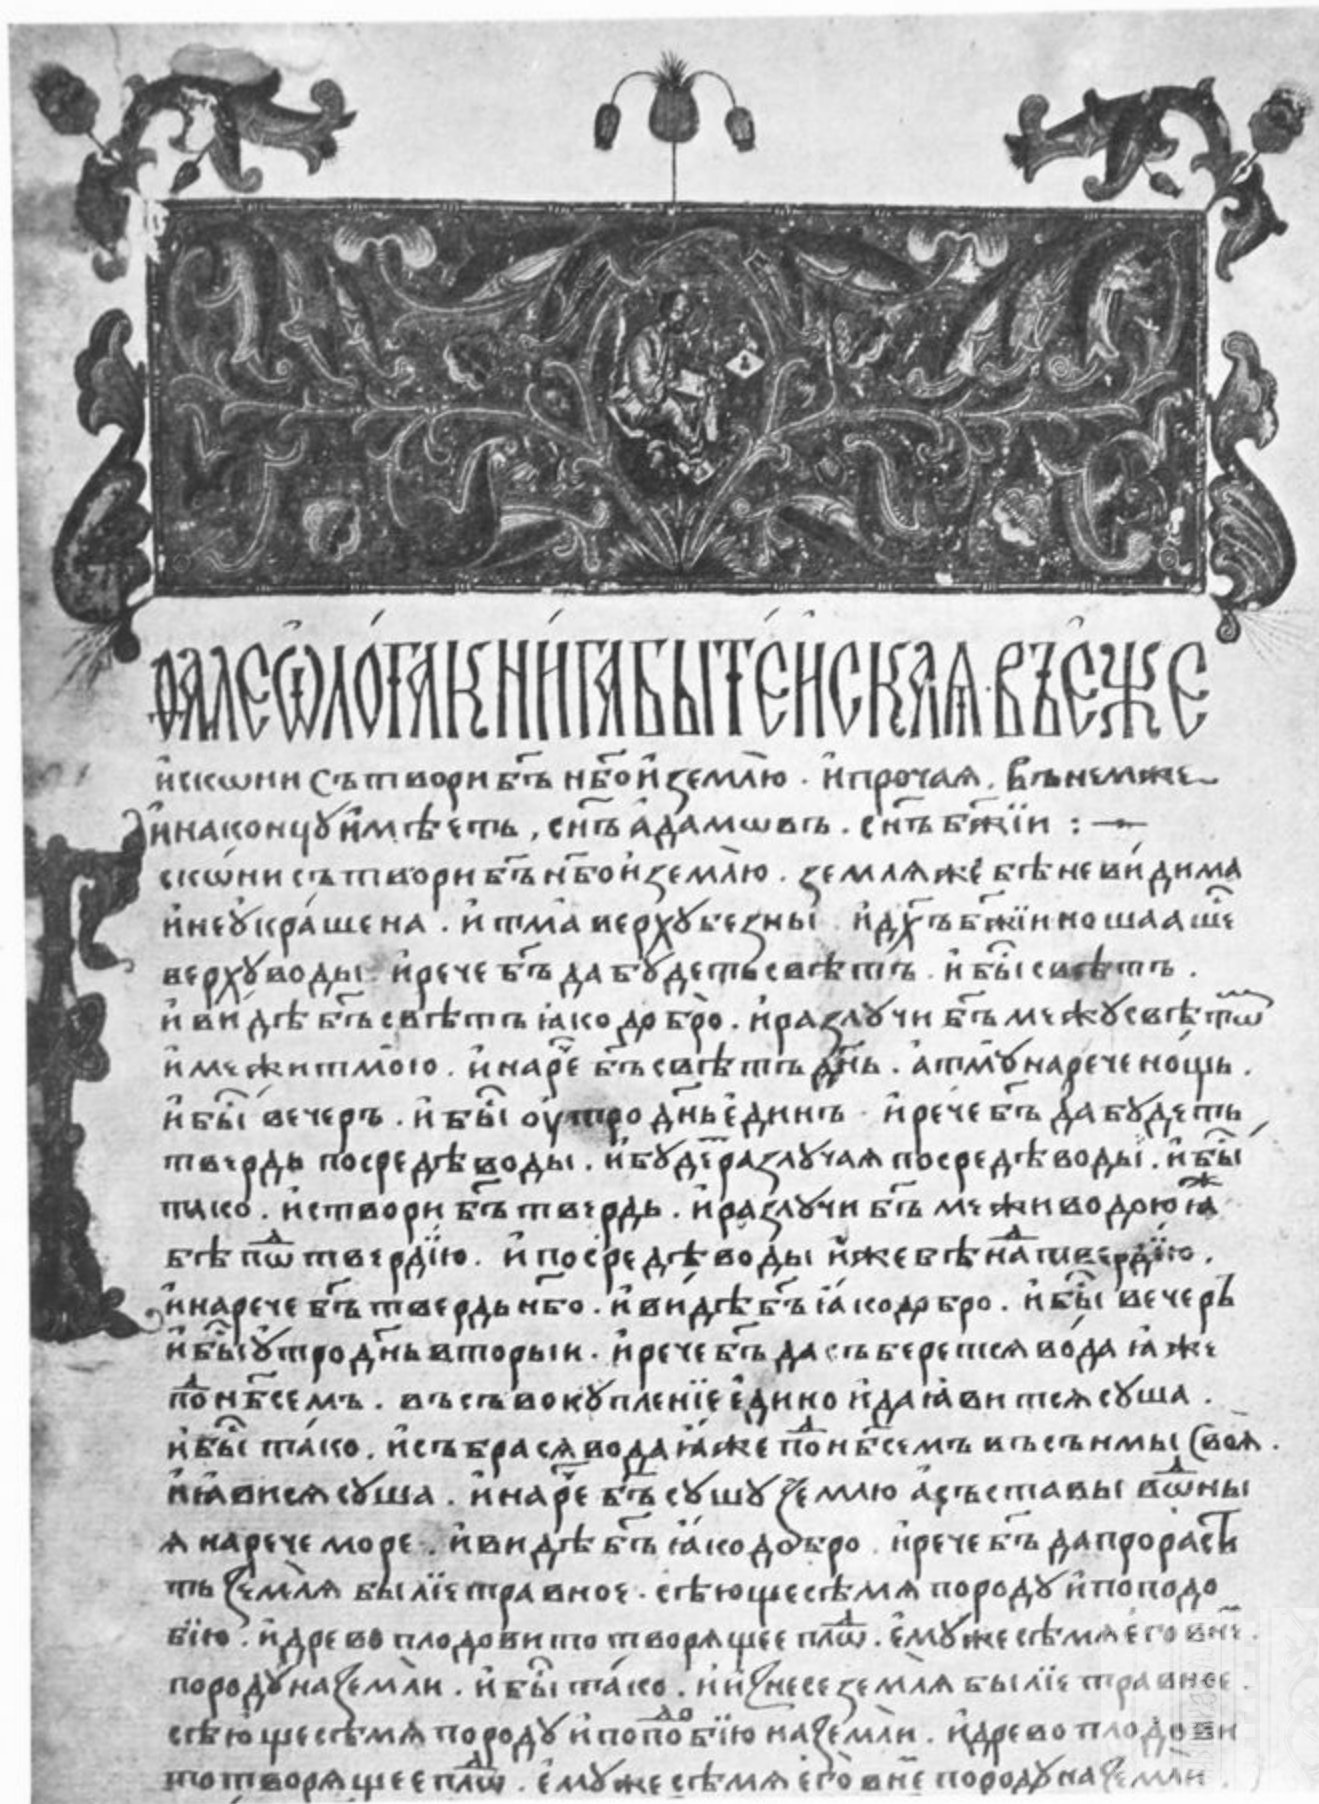 ПАЛЕѠЛО́ГА КНИ́ГА БЫТЕ́ЙСКАѦ · ВЪ Е҆́ЖЕ
и҆скѡни сътвори бг҃ъ нб҃о и҆ землю̀ . и҆ прочаѧ . въ немже
и҆ наконцꙋ и҆мѣеть , сн҃ъ а҆дамѡвъ . сн҃ъ бж҃їи :
скѡ́ни сътвори бг҃ъ нб҃о и҆ землю̀ . землѧ же бѣ неви́дима
и҆ неꙋ҆кра́шена . и҆ тма̀ верхꙋ безны и҆ дх҃ъ бж҃їи ношааше
верхꙋ воды . и҆ рече бг҃ъ да бꙋдеть свѣтъ . и҆ бы̑ свѣтъ .
и҆ ви́дѣ бг҃ъ свѣтъ ꙗко добро̀ . и҆ разлꙋчи бг҃ъ межꙋ свѣтѡⷨ
и҆ межи тмо́ю . и҆ наре̑ бг҃ъ свѣтъ дн҃ь . а҆ тмꙋ нарече но́щь .
и҆ бы̑ вечеръ . и҆ бы̑ ѹ҆тро дн҃ь е҆динъ и҆ рече бг҃ъ да бꙋдеть
твердь посредѣ воды . и҆ бꙋдеⷮ разлꙋчаѧ посредѣ воды . и҆ бы̑
тако . и҆ створи бг҃ъ твердь . и҆ разлꙋчи бг҃ъ межи водою ꙗⷤ
бѣ пѡⷣ твердїю . и҆ посредѣ воды и҆же бѣ наⷣ твердїю .
и҆ нарече бг҃ъ твердь нб҃о . и҆ ви́дѣ бг҃ъ ꙗ҆ко добро . и҆ бы̑ вечеръ
и҆ бы̑ ꙋ҆тро дн҃ь вторыи . и҆ рече бг҃ъ да съберетсѧ вода̀ ꙗже
поⷣ нб҃семъ . въ съвокꙋпленїе е҆дино и҆ да ꙗ҆витсѧ сꙋша .
и҆ бы̑ та́ко . и҆ събрасѧ вода ꙗ҆́же поⷣ нб҃семъ въ сънмы своѧ̀ .
и҆ ꙗ҆висѧ сꙋша . и҆ наре̑ бг҃ъ сꙋшꙋ землю а҆ съставы вѡⷣны
ѧ нарече море . и҆ ви́дѣ бг҃ъ ꙗ҆́ко добро . и҆ рече бг҃ъ да прорасти
ть землѧ̀ былїе травное . сѣюще сѣмѧ по родꙋ и҆ по подо
бїю . и҆ древо плодовито творѧщее плѡⷣ . е҆мꙋже сѣмѧ е҆го в неⷨ .
по родꙋ на землѝ . и҆ бы̑ та́ко . и҆ и҆знесе землѧ̀ былїе травнее .
сѣюще сѣмѧ по родꙋ и҆ по поⷣⷪбїю на землѝ . и҆ древо плодови
то творѧщее плѡⷣ . е҆мꙋже сѣмѧ е҆го̀ в неⷨ по родꙋ на земли .